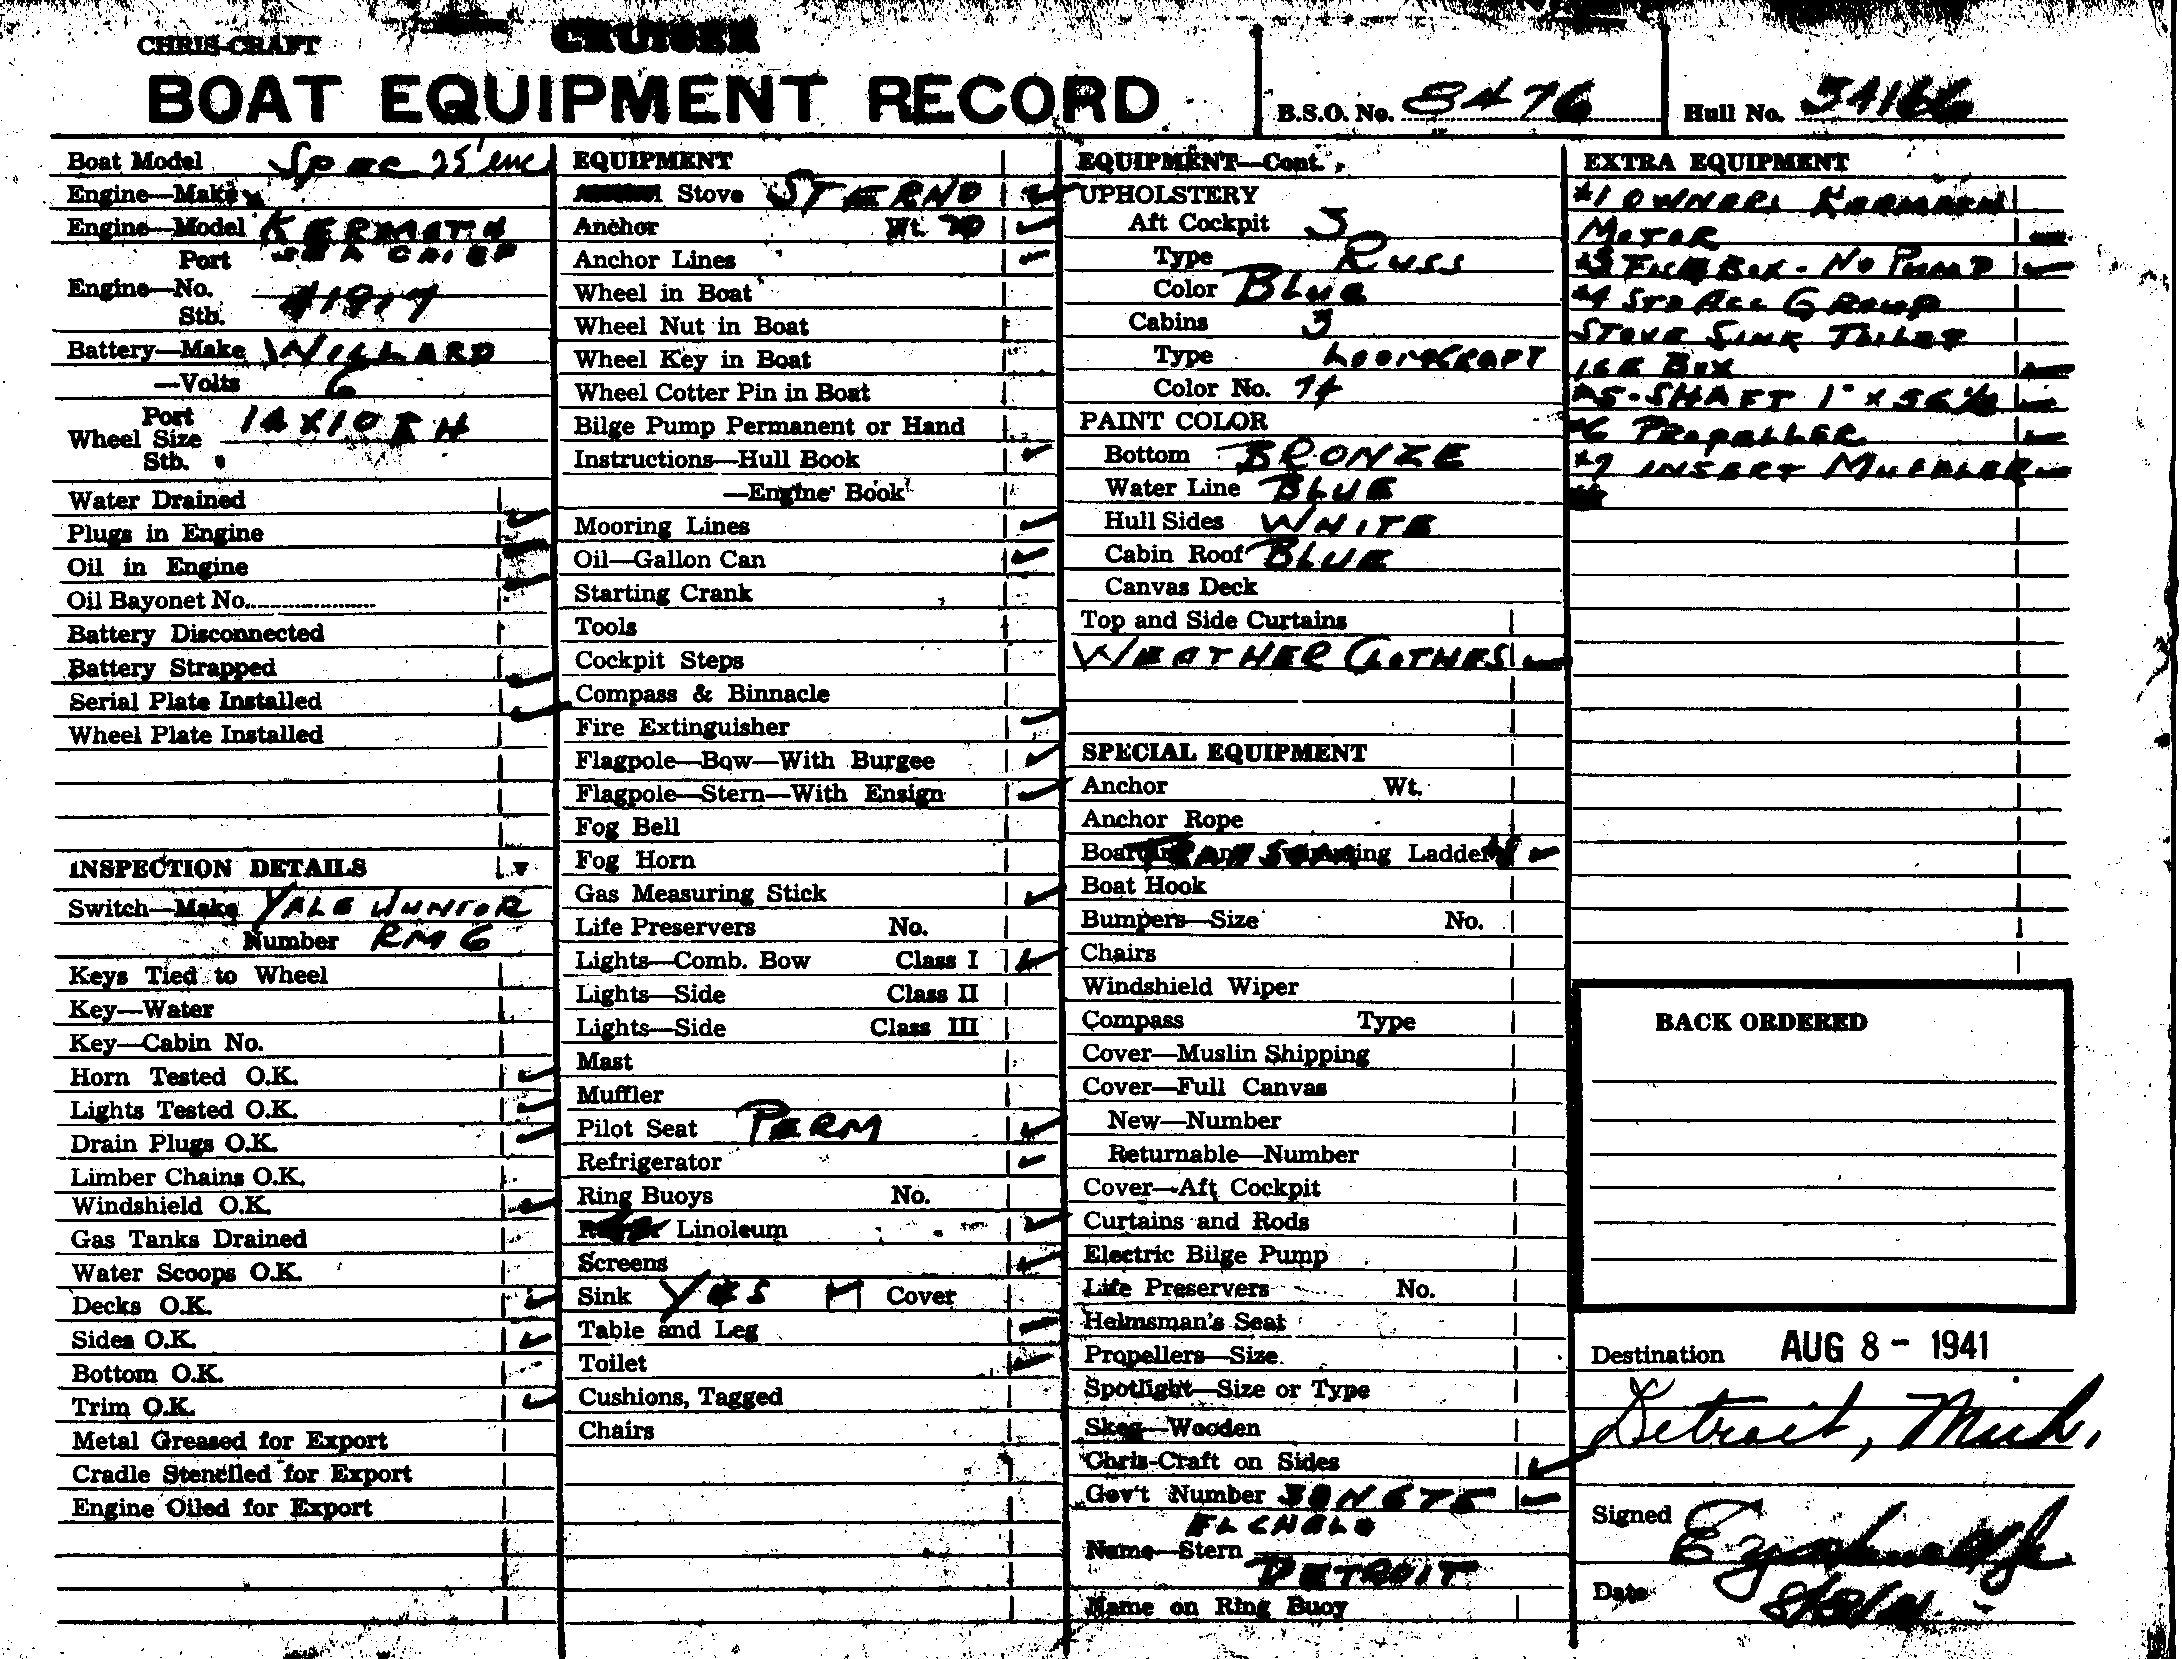 CHRIS-CRAFT CRUISER
BOAT EQUIPMENT RECORD
B.S.O. No. 8476
Hull No. 54166
Boat Model Spec 25' enc
Engine—Make
Engine—Model KERMATH
Port SEA CHIEF
Engine—No. 41917
Stb.
Battery—Make WILLARD
—Volts 6
Port 14 X 10 R H
Wheel Size
Stb.
Water Drained
Plugs in Engine ✓
Oil in Engine ✓
Oil Bayonet No. ✓
Battery Disconnected
Battery Strapped
Serial Plate Installed ✓
Wheel Plate Installed ✓
INSPECTION DETAILS
Switch—Make YALE JUNIOR
Number RM 6
Keys Tied to Wheel
Key—Water
Key—Cabin No.
Horn Tested O.K. ✓
Lights Tested O.K. ✓
Drain Plugs O.K. ✓
Limber Chains O.K.
Windshield O.K. ✓
Gas Tanks Drained
Water Scoops O.K.
Decks O.K. ✓
Sides O.K. ✓
Bottom O.K.
Trim O.K. ✓
Metal Greased for Export
Cradle Stenciled for Export
Engine Oiled for Export
EQUIPMENT
Stove STERNO ✓
Anchor Wt. 20 ✓
Anchor Lines ✓
Wheel in Boat
Wheel Nut in Boat
Wheel Key in Boat
Wheel Cotter Pin in Boat
Bilge Pump Permanent or Hand
Instructions—Hull Book ✓
—Engine Book
Mooring Lines ✓
Oil—Gallon Can ✓
Starting Crank
Tools
Cockpit Steps
Compass & Binnacle
Fire Extinguisher ✓
Flagpole—Bow—With Burgee ✓
Flagpole—Stern—With Ensign ✓
Fog Bell
Fog Horn
Gas Measuring Stick ✓
Life Preservers No.
Lights—Comb. Bow Class I ✓
Lights—Side Class II
Lights—Side Class III
Mast
Muffler
Pilot Seat PERM ✓
Refrigerator ✓
Ring Buoys No.
Linoleum ✓
Screens ✓
Sink YES Cover
Table and Leg ✓
Toilet ✓
Cushions, Tagged
Chairs
EQUIPMENT—Cont.
UPHOLSTERY
Aft Cockpit 3
Type RUSS
Color BLUE
Cabins 3
Type LOOMCRAFT
Color No. 74
PAINT COLOR
Bottom BRONZE
Water Line BLUE
Hull Sides WHITE
Cabin Roof BLUE
Canvas Deck
Top and Side Curtains
WEATHER CLOTHES ✓
SPECIAL EQUIPMENT
Anchor Wt.
Anchor Rope
Ladder ✓
Boat Hook
Bumpers—Size No.
Chairs
Windshield Wiper
Compass Type
Cover—Muslin Shipping
Cover—Full Canvas
New—Number
Returnable—Number
Cover—Aft Cockpit
Curtains and Rods
Electric Bilge Pump
Life Preservers No.
Helmsman's Seat
Propellers—Size
Spotlight—Size or Type
Skeg—Wooden
Chris-Craft on Sides ✓
Gov't Number ✓
Name—Stern
DETROIT
Name on Ring Buoy
EXTRA EQUIPMENT
#1 OWNERS KERMATH
MOTOR
#3 FISH BOX - NO PUMP
#4 STD ACC GROUP
STOVE SINK TOILET
ICE BOX
#5 - SHAFT 1" X
#6 PROPELLER
#7 INSERT MUFFLER
BACK ORDERED
Destination AUG 8 - 1941
Detroit, Mich.
Signed
Date 8/8/41